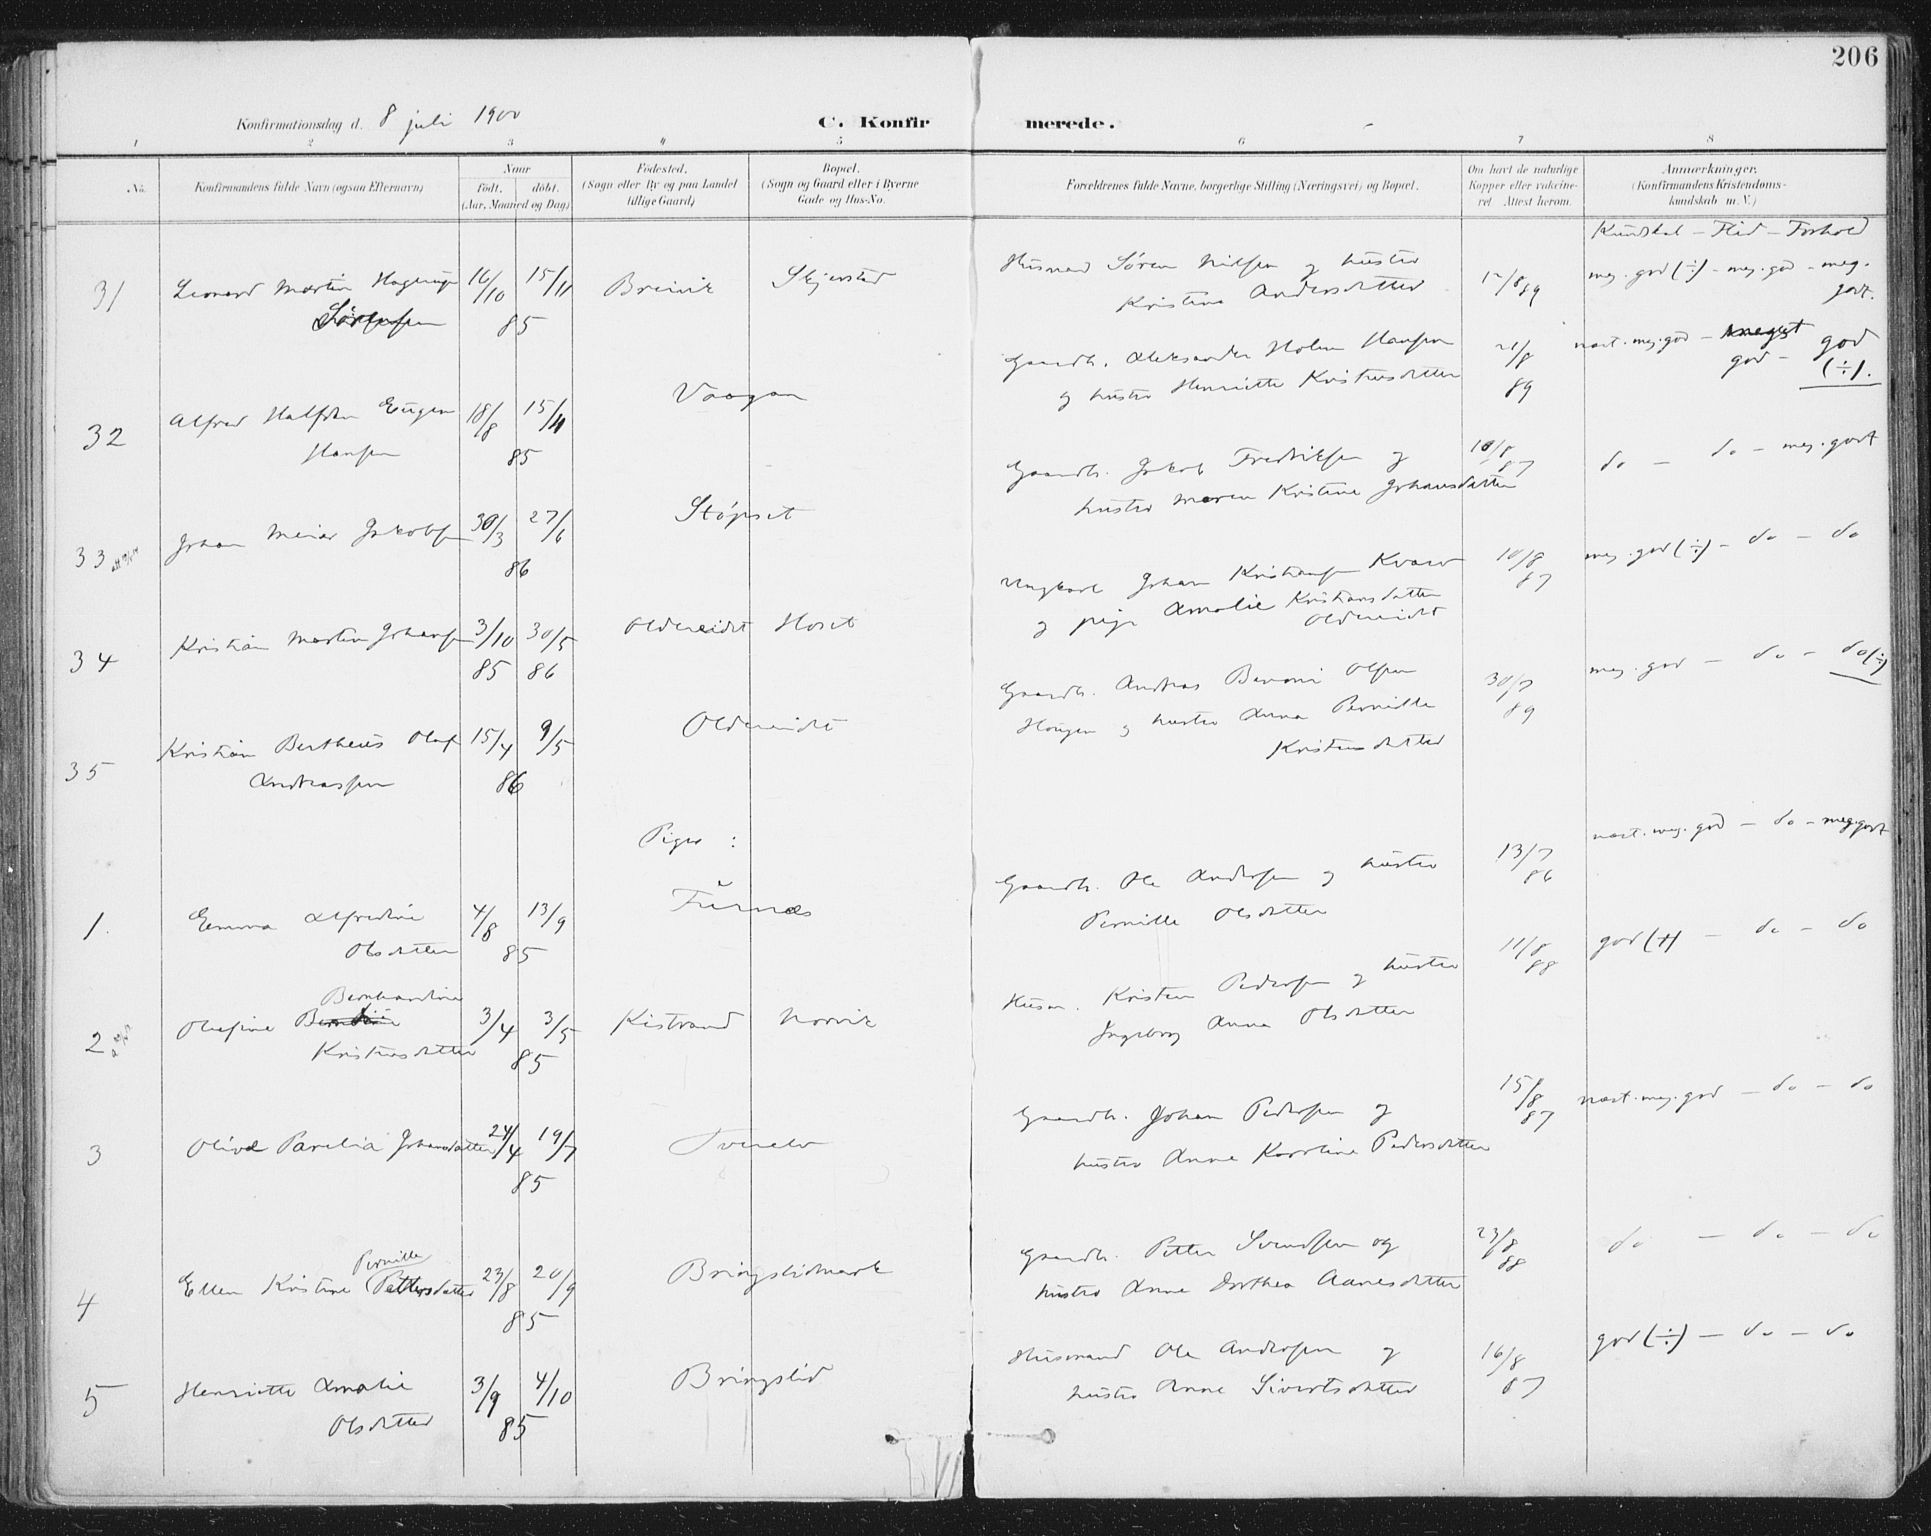 206
Konfirmationsdag d. 8 juli 1900
C. Konfirmerede.
1 2 3 4 5 6 7 8
No.
Konfirmandens fulde Navn (ogsaa Efternavn)
Naar
født. døbt.
(Aar, Maaned og Dag)
Fødested.
(Sogn eller By og paa Landet
tillige Gaard)
Bopæl.
(Sogn og Gaard eller i Byerne
Gade og Hus-No.
Forældrenes fulde Navne, borgerlige Stilling (Næringsvei) og Bopæl.
Om havt de naturlige
Kopper eller vakcine-
ret Attest herom.
Anmærkninger.
(Konfirmandens Kristendoms-
kundskab m. V.)
Kundskab – Flid – Forhold
31 Leonard Martin Hagerup 16/10 15/11 Breivik Skjerstad
Sørensen 85
Husmand Søren Nilsen og hustro
Kristine Andersdatter
17/8 89
meg. god (÷) – meg. god – meg.
godt.
32 Alfred Halfdan Eugen 18/8 15/11 Vaagan
Hansen 85
Gaardb. Aleksander Holm Hansen
og hustro Henriette Kristensdatter
21/8
89
næst. meg. god – meget god
god – (÷).
33 Johan Meier Jakobsen 30/3 27/6 Støpset
86
Gaardb. Jakob Fredriksen og
hustro Maren Kristine Johansdatter
10/8
87
do – do – meg. godt
34 Kristian Martin Johansen 3/10 30/5 Oldereidet Hoset
85 86
Ungkarl Johan Kristiansen Kvarv
og pige Amalie Kristiansdatter
Oldereidet
10/8
87
meg. god (÷) – do – do
35 Kristian Bertheus Olaf 15/4 9/5 Oldereidet
Andreassen 86
Gaardb. Andreas Benoni Olsen
Haugen og hustro Anna Pernille
Kristensdatter
30/7
89
meg. god – do – do (÷)
Piger :
1. Emma Alfredine 4/8 13/9 Furnæs
Olsdatter 85
Gaardb. Ole Andersen og hustro
Pernille Olsdatter
13/7
86
næst. meg. god – do – meg. godt
Bernhardine
2 Olufine 3/4 3/5 Kistrand Norvik
Kristensdatter 85
Husm. Kristen Pedersen og hustro
Ingeborg Anna Olsdatter
11/8
88
god (+) – do – do
3 Olive Parelia Johansdatter 24/4 19/7 Tverelv
85
Gaardb. Johan Pedersen og
hustro Anne Karoline Pedersdatter
15/8
87
næst. meg. god – do – do
Pernille
4 Ellen Kristine Pettersdatter 23/8 20/9 Bringslidmark
85
Gaardb. Petter Svendsen og
hustro Anne Dorthea Aanesdatter
23/8
88
do – do – do
5 Henriette Amalie 3/9 4/10 Bringslid
Olsdatter 85
Husmand Ole Andersen og
hustro Anne Sivertsdatter
16/8
87
god (÷) – do – do